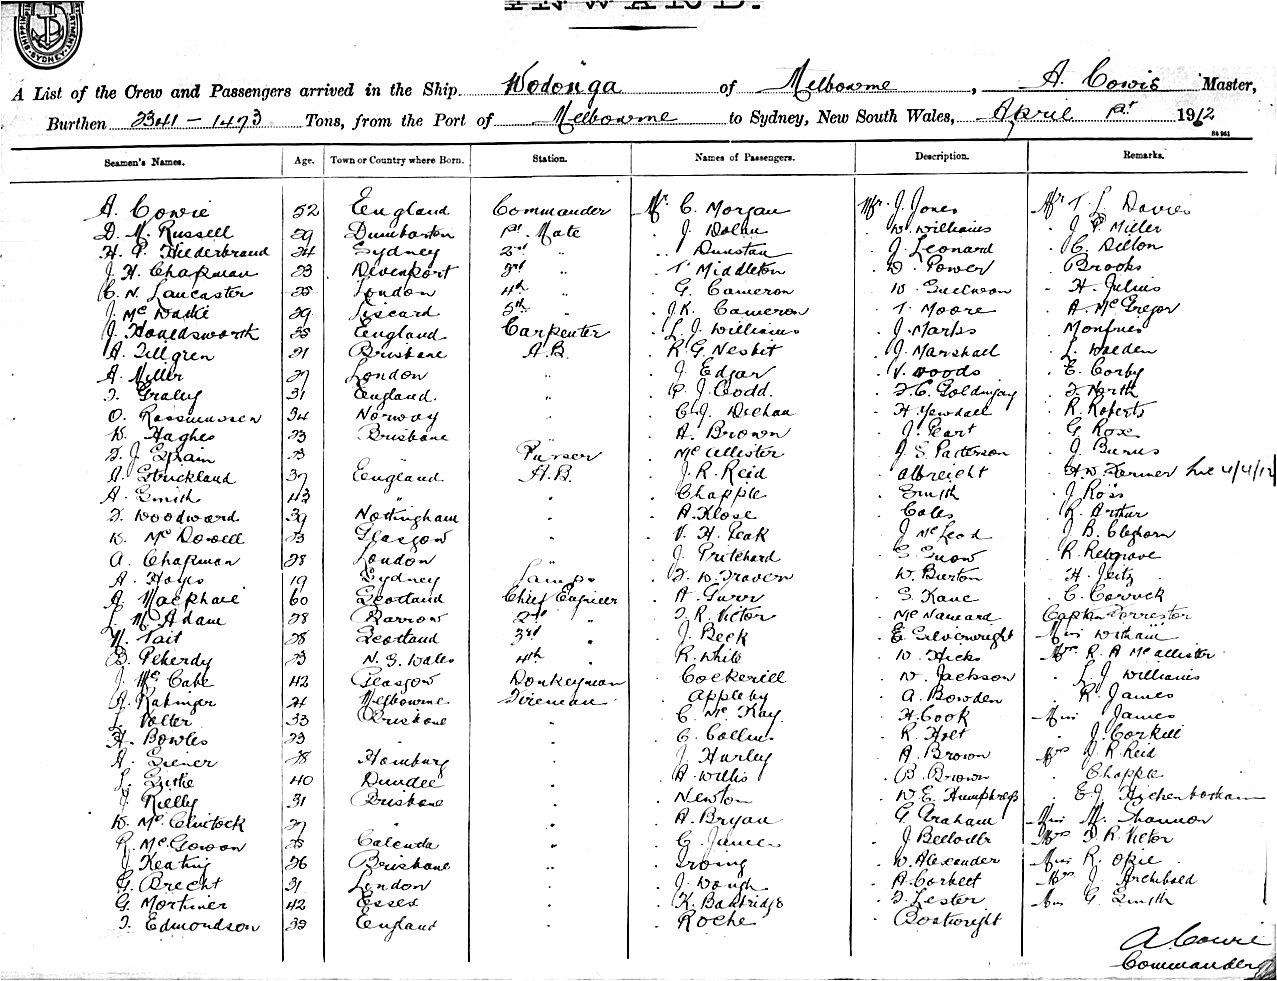 INWARD.
SYDNEY
A List of the Crew and Passengers arrived in the Ship Wodonga of Melbourne, A. Cowie Master,
Burthen 2341 – 1473 Tons, from the Port of Melbourne to Sydney, New South Wales, April 1st 1912
Seamen's Names. Age. Town or Country where Born. Station. Names of Passengers. Description. Remarks.
A. Cowie 52 England Commander Mr C. Morgan Mr J. Jones Mr T. L. Davies
D. M. Russell 29 Dumbarton 1st Mate J. Dolan W. Williams J. P. Miller
H. P. Hilderbrand 24 Sydney 2nd " Dunstan J. Leonard C. Dillon
J. H. Chapman 23 Devenport 3rd " T. Middleton W. Power Brooks
C. N. Lancaster 25 London 4th " G. Cameron W. H. Julius
J. Mc 29 Liscard 5th " J. K. Cameron T. Moore A. McGregor
J. Houldsworth 38 England Carpenter L. J. Williams J. Marks
A. Tillgren 21 Brisbane A.B. R. G. Nesbit J. Marshall L. Walden
A. Miller 27 London " J. Edgar V. Woods E. Corby
31 England. " P. J. Codd. F. C. Goldingay F. North
O. Rassmussen 34 Norway " C. J. H. Yewdall R. Roberts
W. Haghes 23 Brisbane " A. Brown J. Peart G. Rose
F. J. Spain 23 " Purser McAllister J. S. Patterson J. Burns
A. Strickland 37 England A.B. J. R. Reid Albrecht H. W. Fermer 4/4/12
A. Smith 43 " " Chapple Smith J. Ross
F. Woodward 39 Nottingham " A. Klose Coles R. Arthur
W. McDowell 23 Glasgow " V. H. Peak J. McLeod J. B. Cleghorn
A. Chapman 28 London " J. Pritchard S. Snow R. Redgrave
A. Hayes 19 Sydney Lamps F. W. Traven W. Burton H.
A. Macphail 60 Scotland Chief Engineer A. Gurr S. Kane C. Corrick
L. M. Adam 28 Barrow 2nd " F. R. Victor McNamard Captain Forrester
W. Tait 28 Scotland 3rd " J. Beck E. Silverwright Miss Witham
B. Pekerdy 23 N. S. Wales 4th " R. White W. Hicks Mrs R. A. McAllister
J. McCabe 42 Glasgow Donkeyman Cockerill W. Jackson L. J. Williams
A. 24 Melbourne Fireman Appleby A. Bowden R. James
L. 33 Brisbane " C. McKay H. Cook Miss James
H. Bowles 23 " " C. Collins R. Holt J. Corkill
A. 28 Hamburg " J. Hurley A. Brown Mrs J. R. Reid
L. 40 Dundee " A. Willis B. Brown Chapple
J. Rielly 31 Brisbane " Newton W. E. Humphress E. J. Hickenbotham
W. McClintock 27 " " A. Bryan G. Graham Miss M. Shannon
R. McGowan 25 Calcutta " G. James J. Mrs F. R. Victor
J. Keating 26 Brisbane " Irving W. Alexander Miss R. Opie
G. Brecht 31 London " J. Waugh A. Corbett Mrs J. Archibald
G. Mortimer 42 Essex " K. Baktridge F. Lester Miss G. Smith
F. Edmondson 33 England " Roche Boatwright
A. Cowie
Commander